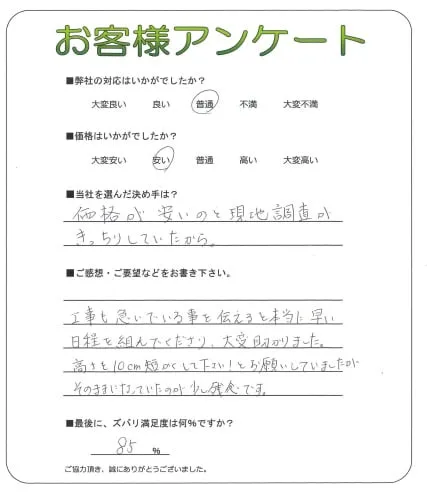 お客様アンケート
■弊社の対応はいかがでしたか？
大変良い 良い 普通 不満 大変不満
■価格はいかがでしたか？
大変安い 安い 普通 高い 大変高い
■当社を選んだ決め手は？
価格が安いのと現地調査が
きっちりしていたから。
■ご感想・ご要望などをお書き下さい。
工事も急いでいる事を伝えると本当に早い
日程を組んでくださり、大変助かりました。
高さを10cm短かくして下さい！とお願いしていましたが
そのままになっていたのが少し残念です。
■最後に、ズバリ満足度は何％ですか？
85 ％
ご協力頂き、誠にありがとうございました。